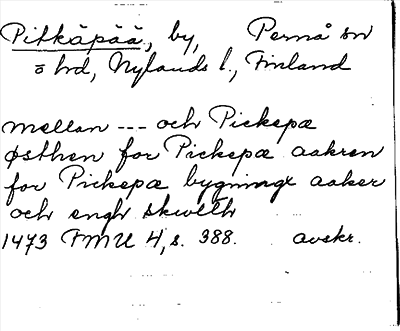 Pitkäpää, by, Pernå sn
o hd, Nylands l., Finland
mellan --- och Pickepæ
østhen for Pickepæ aakren
for Pickepæ bygninge aaker
och engh skwlth
1473 FMU 4, s. 388. avskr.